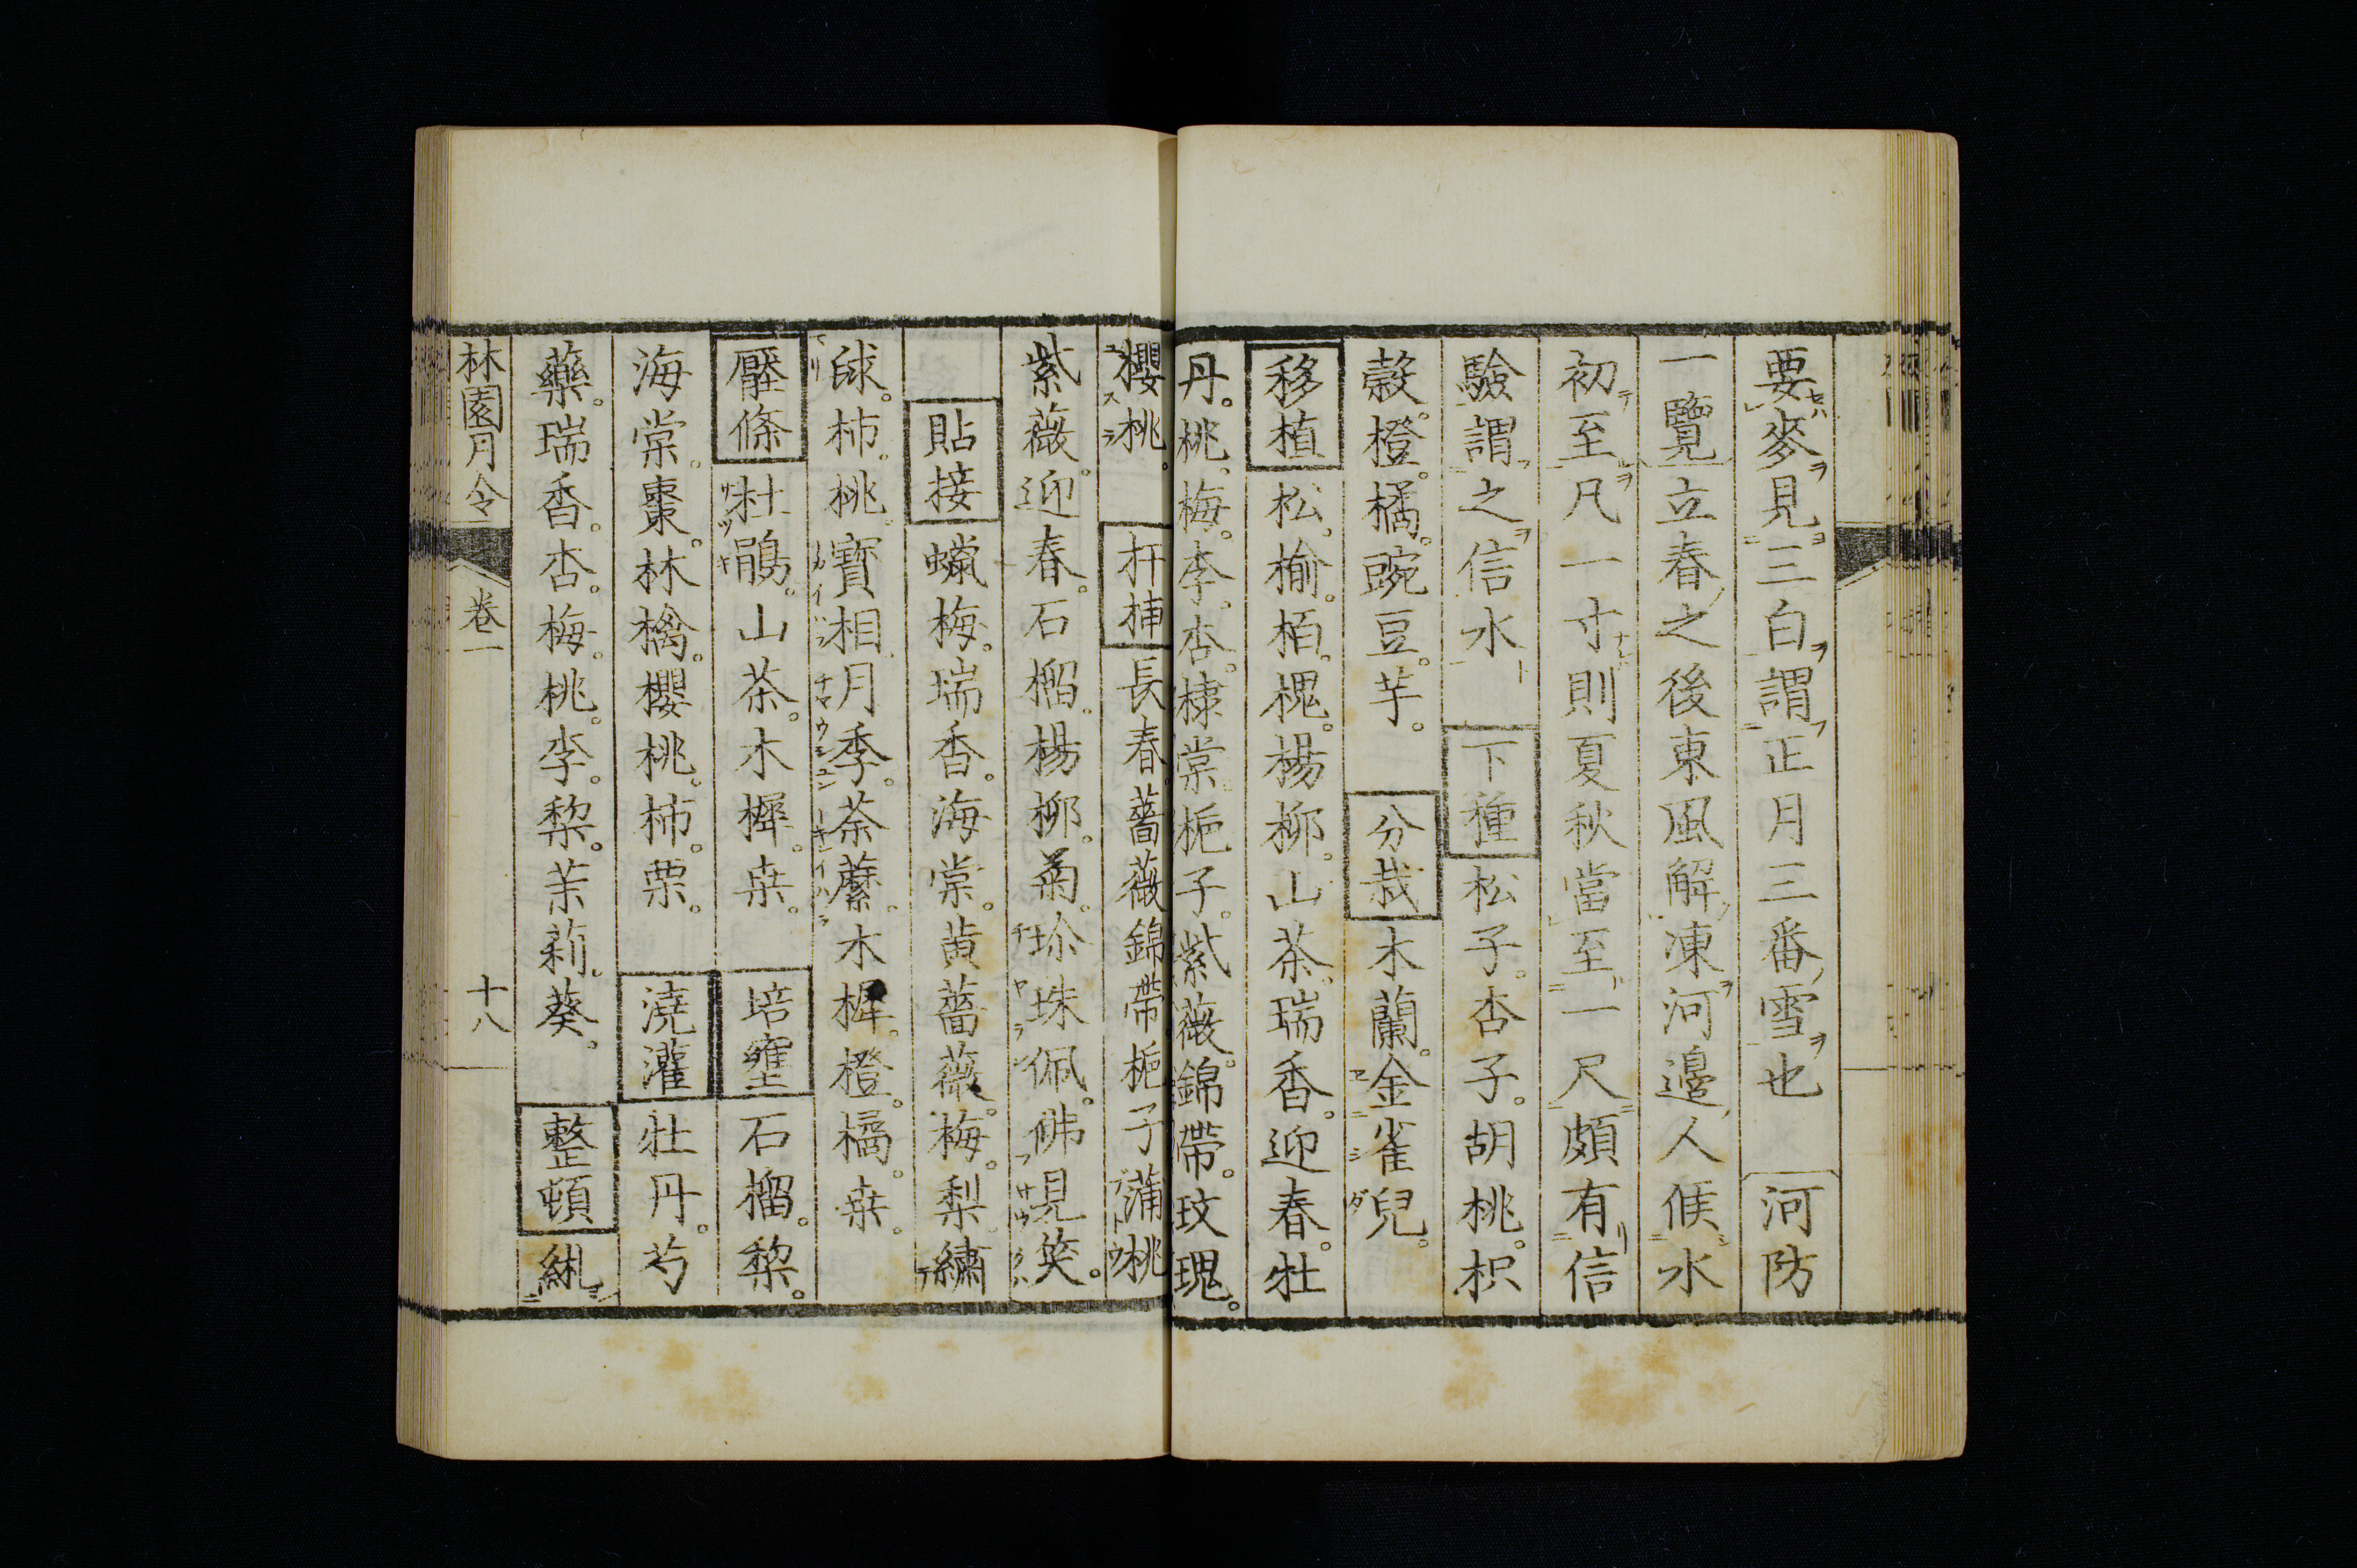 要麥見三白謂正月三番雪也　河防
一覽立春之後東風解凍河邉人候水
初至凡一寸則夏秋當至一尺頗有信
驗謂之信水　下種松子。杏子。胡桃。枳
殼。橙。橘。豌豆。芋。　分栽木蘭。金雀兒。
移植松。榆。栢。槐。楊柳。山茶。瑞香。迎春。牡
丹。桃。梅。李。杏。棣棠。梔子。紫薇。錦帶。玫瑰。
櫻桃。　扦揷長春。薔薇錦帶梔子蒲桃
紫薇。迎春。石榴。楊柳。菊。珍珠佩。佛見笑。
貼接蠟梅。瑞香。海棠。黄薔薇。梅。梨。繡
毬。柿。桃。寶相月季。荼蘼。木樨。橙。橘。桒。
壓條杜鵑。山茶。木樨。桒。　培壅石榴。梨。
海棠。棗。林檎。櫻桃。柿。栗。　澆灌牡丹。芍
藥。瑞香。杏。梅。桃。李。梨。茉莉。葵。　整頓
林園月令　卷一　十八